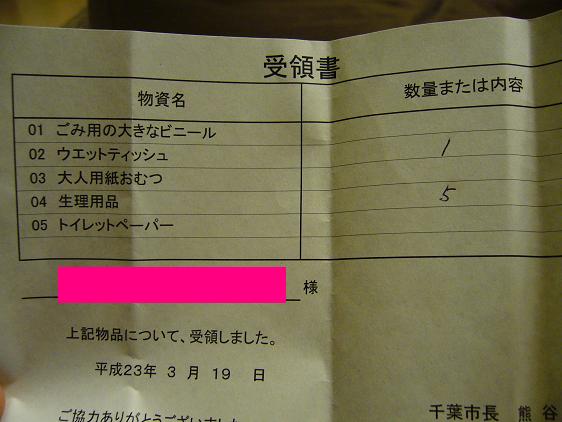 受領書
物資名 数量または内容
01 ごみ用の大きなビニール
02 ウエットティッシュ 1
03 大人用紙おむつ
04 生理用品 5
05 トイレットペーパー
様
上記物品について、受領しました。
平成23年 3 月 19 日
ご協力ありがとうございました
千葉市長 熊 谷